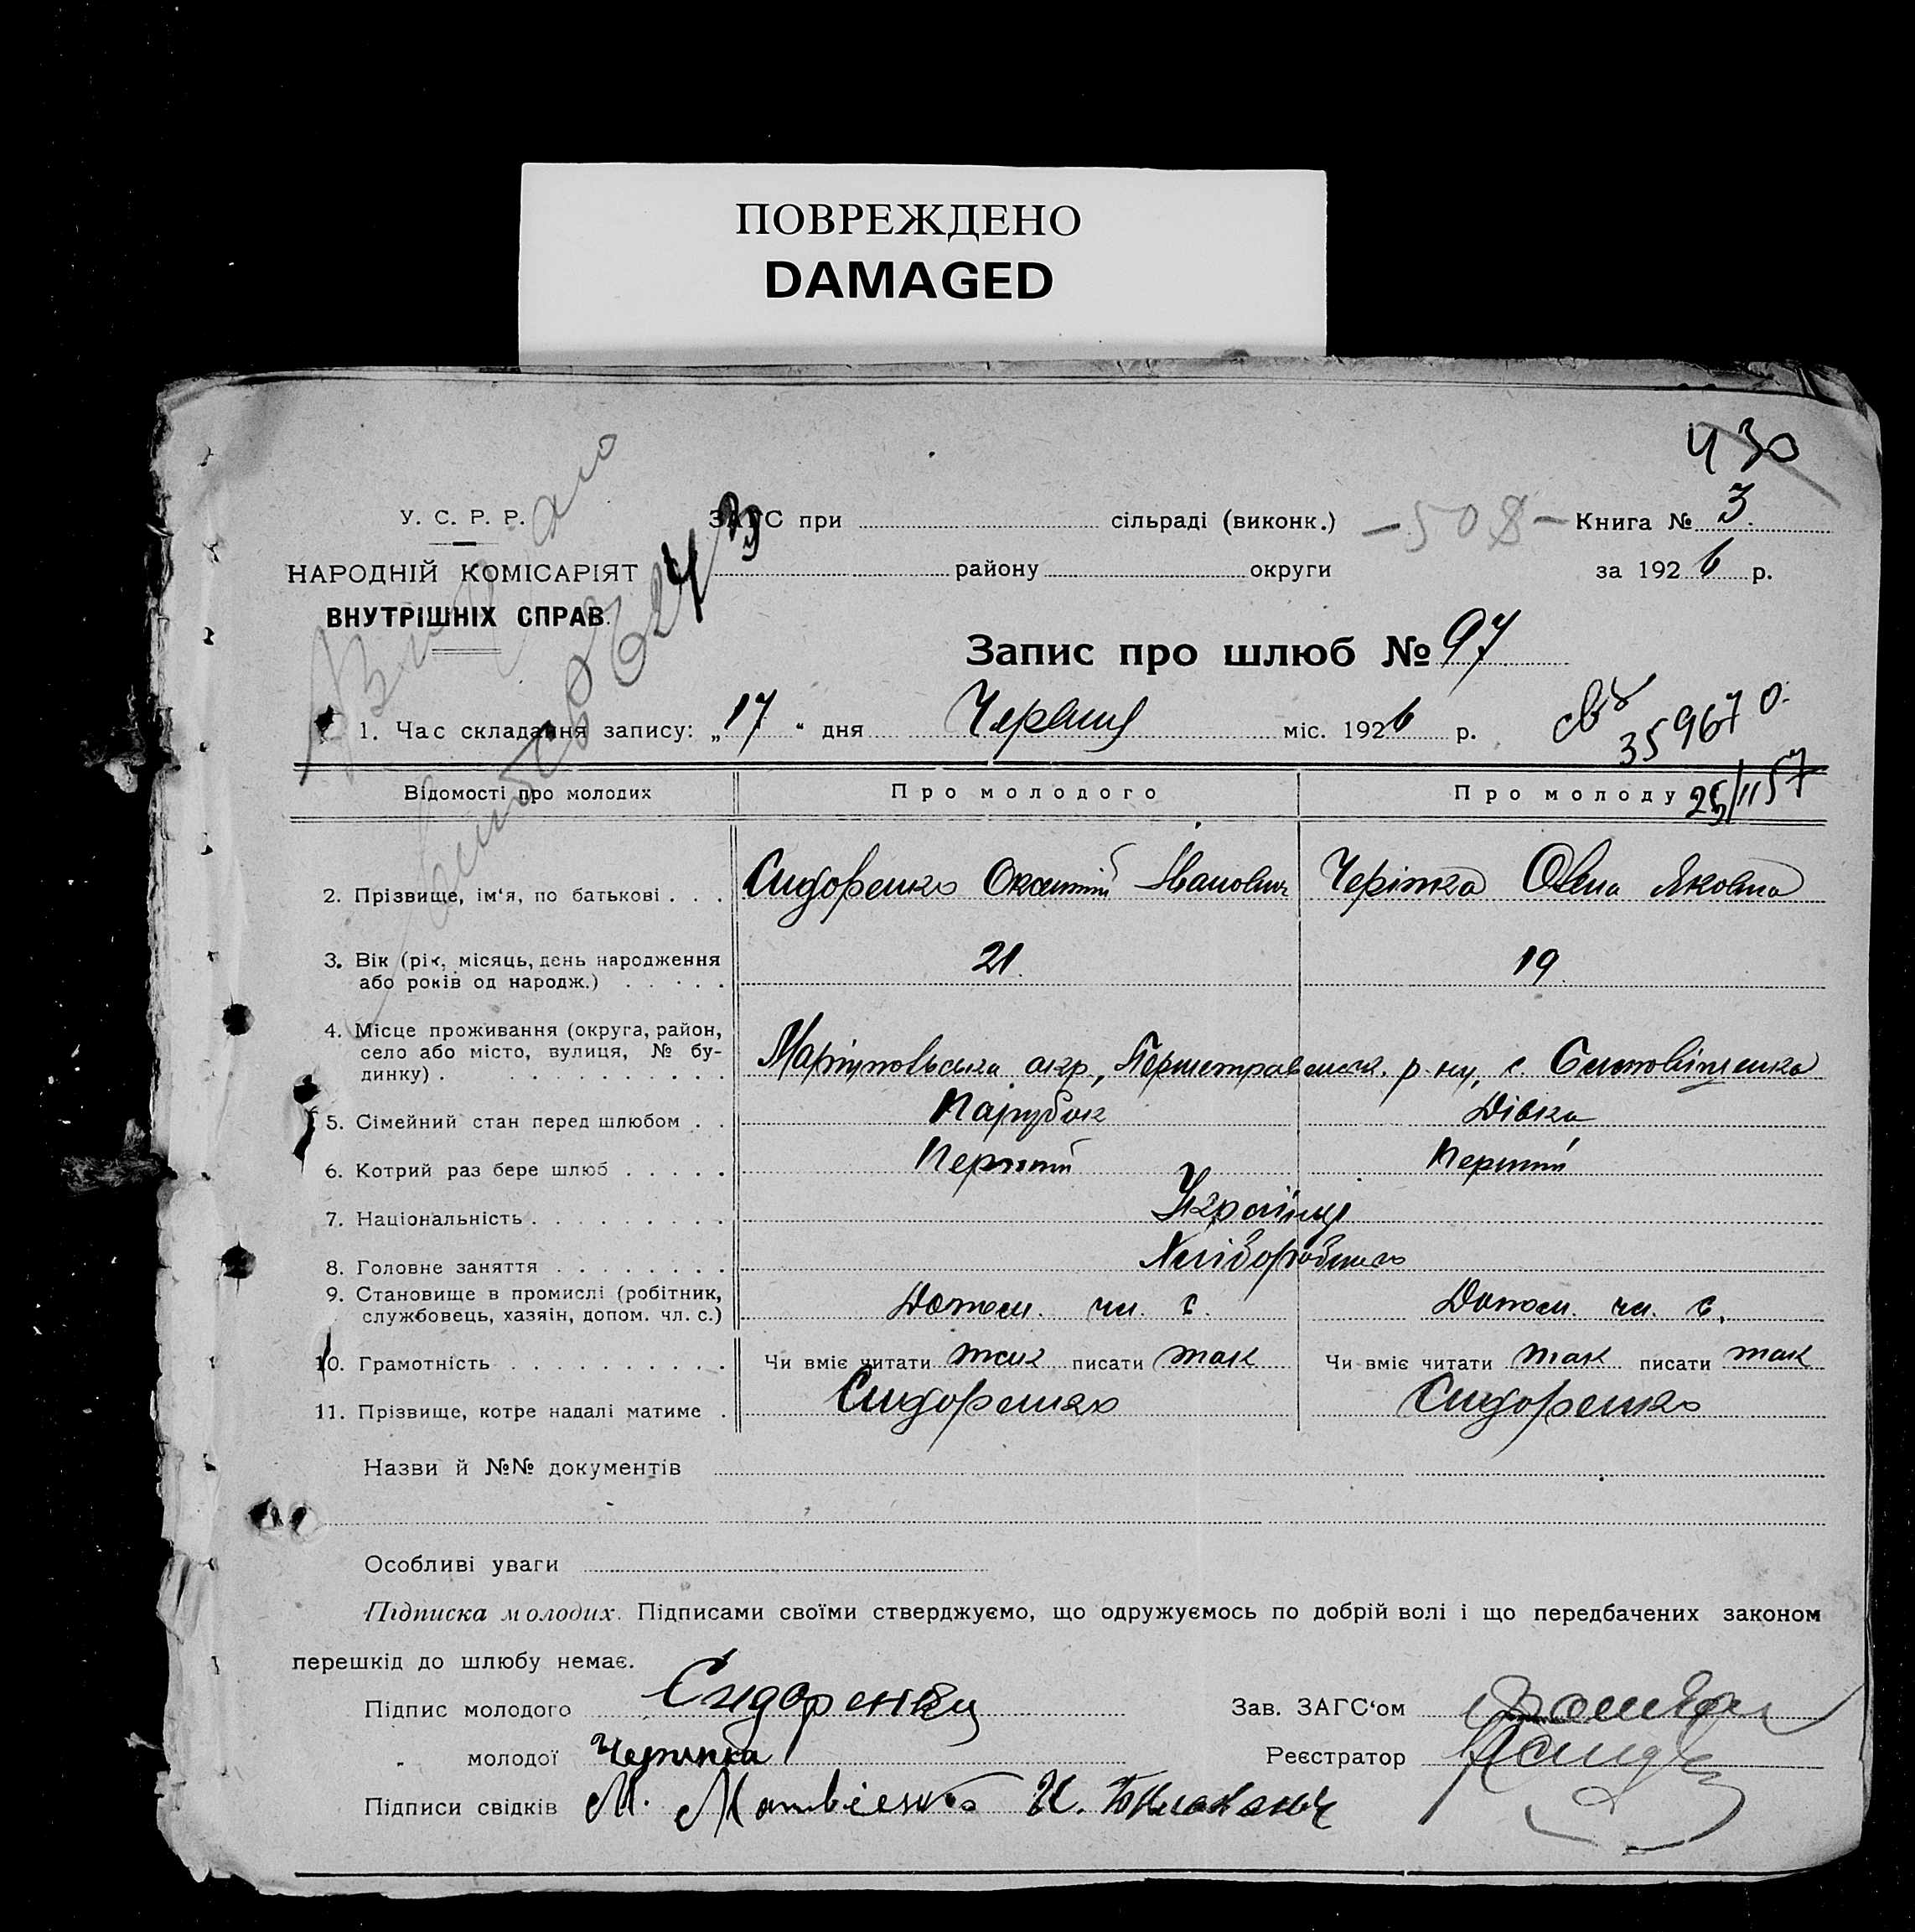 ПОВРЕЖДЕНО
DAMAGED
430
У. С. Р. Р.
ЗАГС при сільраді (виконк.) – 508 – Книга № 3.
НАРОДНІЙ КОМІСАРІЯТ
району округи за 1926 р.
ВНУТРІШНІХ СПРАВ.
Запис про шлюб № 97
1. Час складання запису: „17“ дня Червня міс. 1926 р.
359670
25/II 57
Відомості про молодих Про молодого Про молоду
2. Прізвище, ім‘я, по батькові . . . Сидоренко Оксентій Іванович Черінка Олена Яковна
3. Вік (рік, місяць, день народження
або років од народж.) . . . . . 21. 19.
4. Місце проживання (округа, район,
село або місто, вулиця, № бу-
динку) . . . . . . . . . . . Маріупольська окр., Першетравенськ. р-ну, с.
5. Сімейний стан перед шлюбом . . Парубок Дівка
6. Котрий раз бере шлюб . . . . . Перший Перший
7. Національність . . . . . . . . . Українці
8. Головне заняття . . . . . . . . Хліборобство
9. Становище в промислі (робітник,
службовець, хазяін, допом. чл. с.) Допом. чл. с. Допом. чл. с.
10. Грамотність . . . . . . . . . . Чи вміє читати так писати так Чи вміє читати так писати так
11. Прізвище, котре надалі матиме . Сидоренко Сидоренко
Назви й №№ документів
Особливі уваги
Підписка молодих. Підписами своїми стверджуємо, що одружуємось по добрій волі і що передбачених законом
перешкід до шлюбу немає.
Підпис молодого Сидоренко Зав. ЗАГС‘ом
„ молодої Черинка Реєстратор
Підписи свідків М. Матвієнко И.